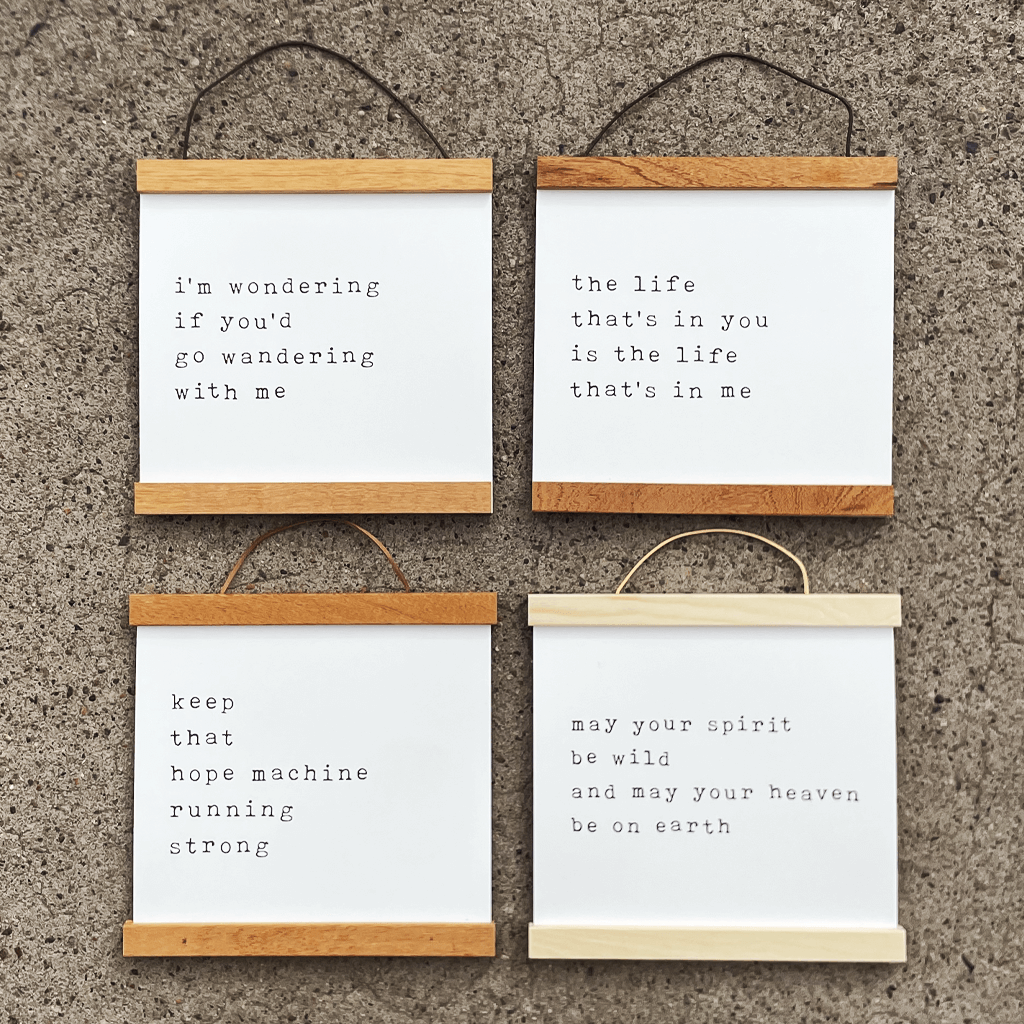 i'm wondering
if you'd
go wandering
with me
the life
that's in you
is the life
that's in me
keep
that
hope machine
running
strong
may your spirit
be wild
and may your heaven
be on earth